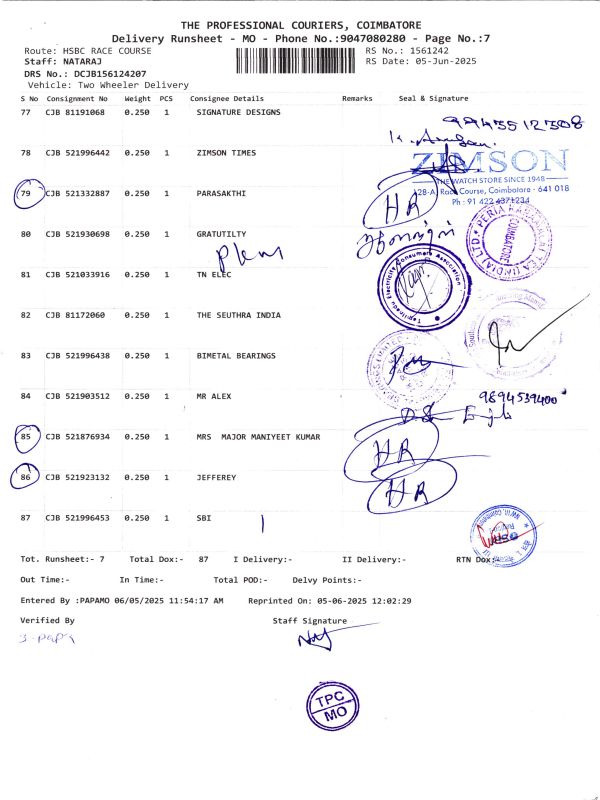 THE PROFESSIONAL COURIERS, COIMBATORE
Delivery Runsheet - MO - Phone No.:9047080280 - Page No.:7
Route: HSBC RACE COURSE RS No.: 1561242
Staff: NATARAJ RS Date: 05-Jun-2025
DRS No.: DCJB156124207
Vehicle: Two Wheeler Delivery
S No Consignment No Weight PCS Consignee Details Remarks Seal & Signature
77 CJB 81191068 0.250 1 SIGNATURE DESIGNS
9945512508
78 CJB 521996442 0.250 1 ZIMSON TIMES
ZIMSON
THE WATCH STORE SINCE 1948
79 CJB 521332887 0.250 1 PARASAKTHI
HR
128-A, Race Course, Coimbatore - 641 018
Ph : 91 422 4371234
80 CJB 521930698 0.250 1 GRATUTILTY
PERIA KARAMALAI TEA (INDIA) LTD. COIMBATORE
81 CJB 521033916 0.250 1 TN ELEC
Tamilnadu Electricity Consumers Association
82 CJB 81172060 0.250 1 THE SEUTHRA INDIA
83 CJB 521996438 0.250 1 BIMETAL BEARINGS
84 CJB 521903512 0.250 1 MR ALEX
9894539400
85 CJB 521876934 0.250 1 MRS MAJOR MANIYEET KUMAR
HR
86 CJB 521923132 0.250 1 JEFFEREY
HR
87 CJB 521996453 0.250 1 SBI
Tot. Runsheet:- 7 Total Dox:- 87 I Delivery:- II Delivery:- RTN Dox
Out Time:- In Time:- Total POD:- Delvy Points:-
Entered By :PAPAMO 06/05/2025 11:54:17 AM Reprinted On: 05-06-2025 12:02:29
Verified By Staff Signature
TPC
MO